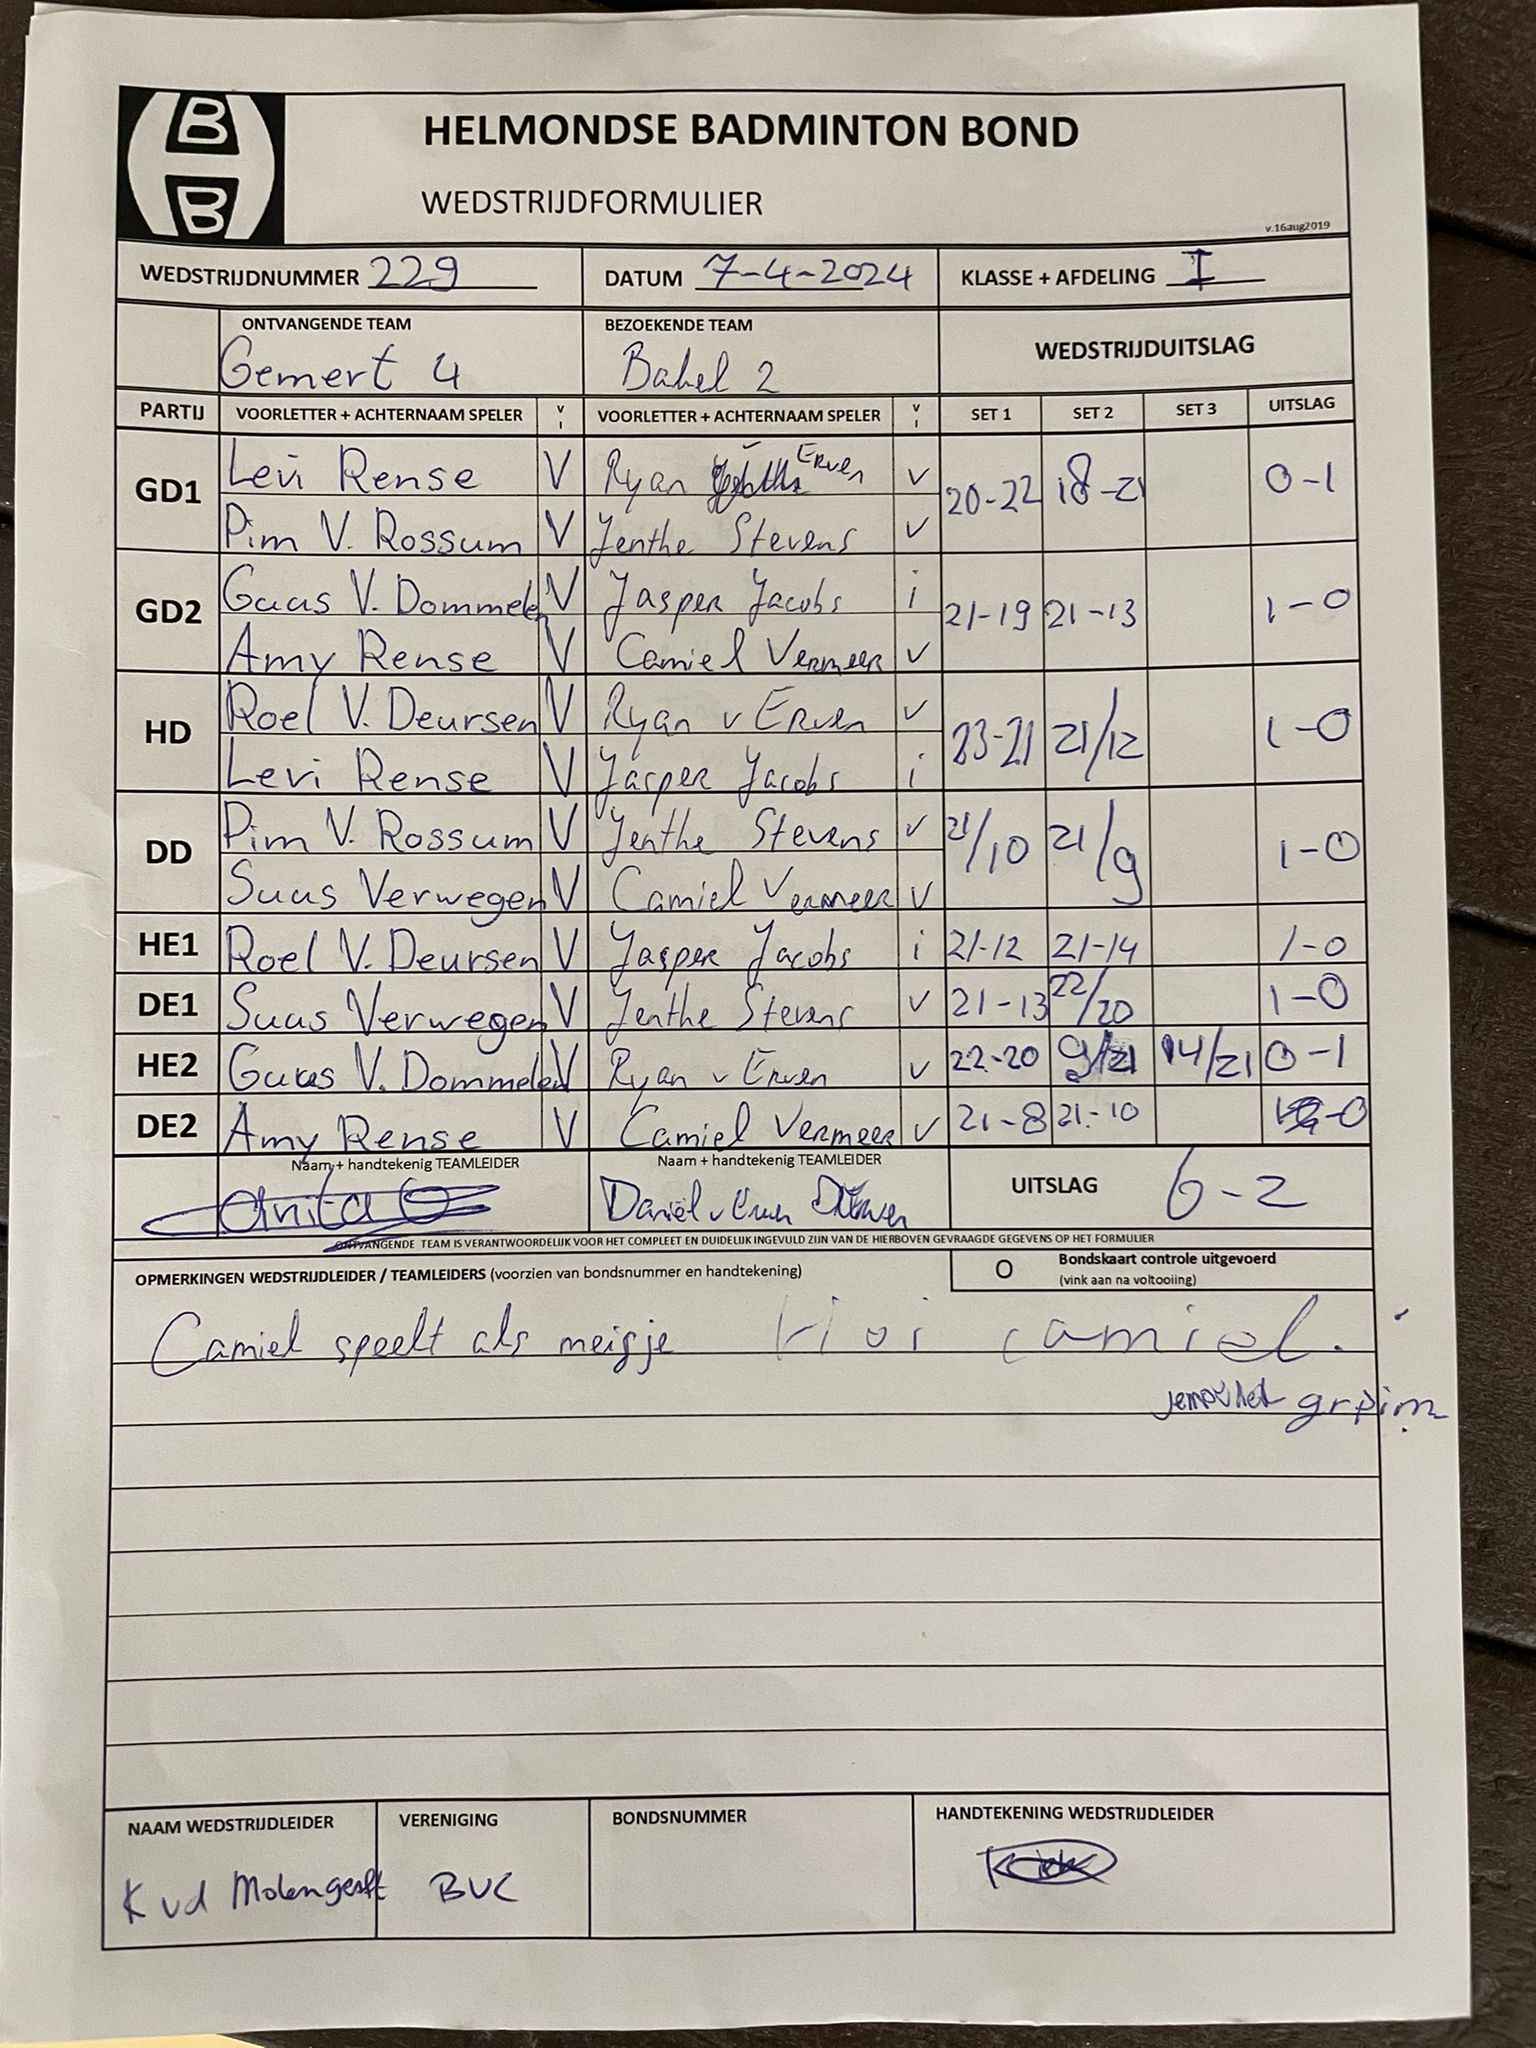 B
B
HELMONDSE BADMINTON BOND
WEDSTRIJDFORMULIER
v.16aug2019
WEDSTRIJDNUMMER 229 DATUM 7-4-2024 KLASSE + AFDELING I
ONTVANGENDE TEAM BEZOEKENDE TEAM WEDSTRIJDUITSLAG
Gemert 4 Bakel 2
PARTIJ VOORLETTER + ACHTERNAAM SPELER V I VOORLETTER + ACHTERNAAM SPELER V I SET 1 SET 2 SET 3 UITSLAG
GD1 Levi Rense V Ryan Erven v 20-22 18-21 0-1
Pim V. Rossum V Jenthe Stevens v
GD2 Guus V. Dommelen V Jasper Jacobs i 21-19 21-13 1-0
Amy Rense V Camiel Vermeer v
HD Roel V. Deursen V Ryan v Erven v 23-21 21/12 1-0
Levi Rense V Jasper Jacobs i
DD Pim V. Rossum V Jenthe Stevens v 21/10 21/9 1-0
Suus Verwegen V Camiel Vermeer v
HE1 Roel V. Deursen V Jasper Jacobs i 21-12 21-14 1-0
DE1 Suus Verwegen V Jenthe Stevens v 21-13 22/20 1-0
HE2 Guus V. Dommelen V Ryan v Erven v 22-20 9/21 14/21 0-1
DE2 Amy Rense V Camiel Vermeer v 21-8 21-10 1-0
Naam + handtekenig TEAMLEIDER Naam + handtekenig TEAMLEIDER UITSLAG 6-2
Anita Daniël v Erven
ONTVANGENDE TEAM IS VERANTWOORDELIJK VOOR HET COMPLEET EN DUIDELIJK INGEVULD ZIJN VAN DE HIERBOVEN GEVRAAGDE GEGEVENS OP HET FORMULIER
OPMERKINGEN WEDSTRIJDLEIDER / TEAMLEIDERS (voorzien van bondsnummer en handtekening) O Bondskaart controle uitgevoerd
(vink aan na voltooiing)
Camiel speelt als meisje Hoi camiel.
grpim
NAAM WEDSTRIJDLEIDER VERENIGING BONDSNUMMER HANDTEKENING WEDSTRIJDLEIDER
K vd Molengraft BVC